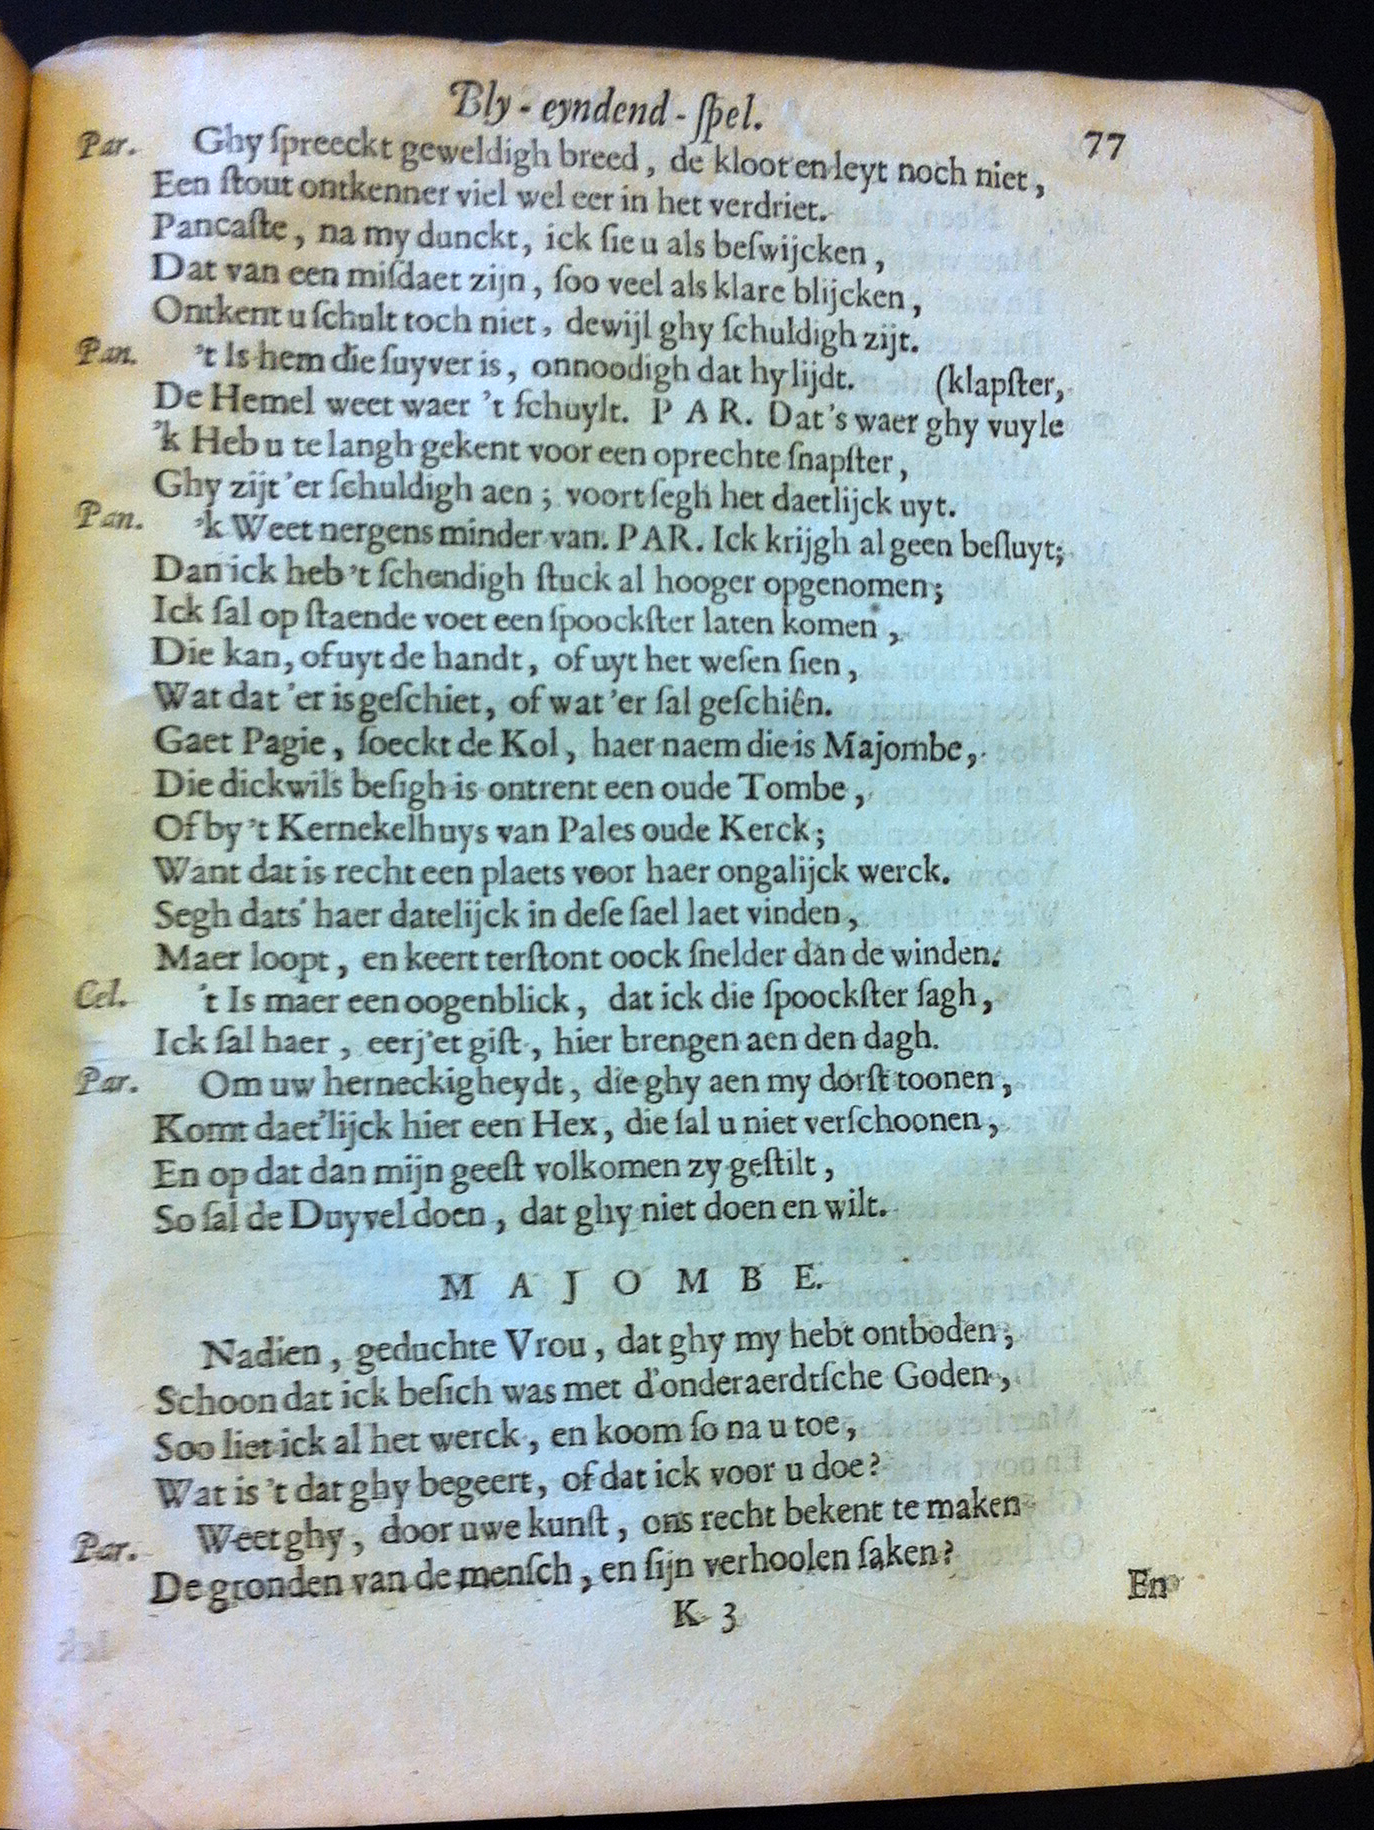 Bly-eyndend-ſpel. 77
Par. Ghy ſpreeckt geweldigh breed, de kloot en leyt noch niet,
Een ſtout ontkenner viel wel eer in het verdriet.
Pancaſte, na my dunckt, ick ſie u als beſwijcken,
Dat van een miſdaet zijn, ſoo veel als klare blijcken,
Ontkent u ſchult toch niet, dewijl ghy ſchuldigh zijt.
Pan. 't Is hem die ſuyver is, onnoodigh dat hy lijdt. (klapſter,
De Hemel weet waer 't ſchuylt. PAR. Dat's waer ghy vuyle
'k Heb u te langh gekent voor een oprechte ſnapſter,
Ghy zijt 'er ſchuldigh aen; voort ſegh het daetlijck uyt.
Pan. 'k Weet nergens minder van. PAR. Ick krijgh al geen beſluyt;
Dan ick heb 't ſchendigh ſtuck al hooger opgenomen;
Ick ſal op ſtaende voet een ſpoockſter laten komen,
Die kan, of uyt de handt, of uyt het weſen ſien,
Wat dat 'er is geſchiet, of wat 'er ſal geſchiên.
Gaet Pagie, ſoeckt de Kol, haer naem die is Majombe,
Die dickwils beſigh is ontrent een oude Tombe,
Of by 't Kernekelhuys van Pales oude Kerck;
Want dat is recht een plaets voor haer ongalijck werck.
Segh dats' haer datelijck in deſe ſael laet vinden,
Maer loopt, en keert terſtont oock ſnelder dan de winden.
Cel. 't Is maer een oogenblick, dat ick die ſpoockſter ſagh,
Ick ſal haer, eerj'et giſt, hier brengen aen den dagh.
Par. Om uw herneckigheydt, die ghy aen my dorſt toonen,
Komt daet'lijck hier een Hex, die ſal u niet verſchoonen,
En op dat dan mijn geeſt volkomen zy geſtilt,
So ſal de Duyvel doen, dat ghy niet doen en wilt.
MAJOMBE.
Nadien, geduchte Vrou, dat ghy my hebt ontboden,
Schoon dat ick beſich was met d'onderaerdtſche Goden,
Soo liet ick al het werck, en koom ſo na u toe,
Wat is 't dat ghy begeert, of dat ick voor u doe?
Par. Weet ghy, door uwe kunſt, ons recht bekent te maken
De gronden van de menſch, en ſijn verhoolen ſaken?
K 3 En